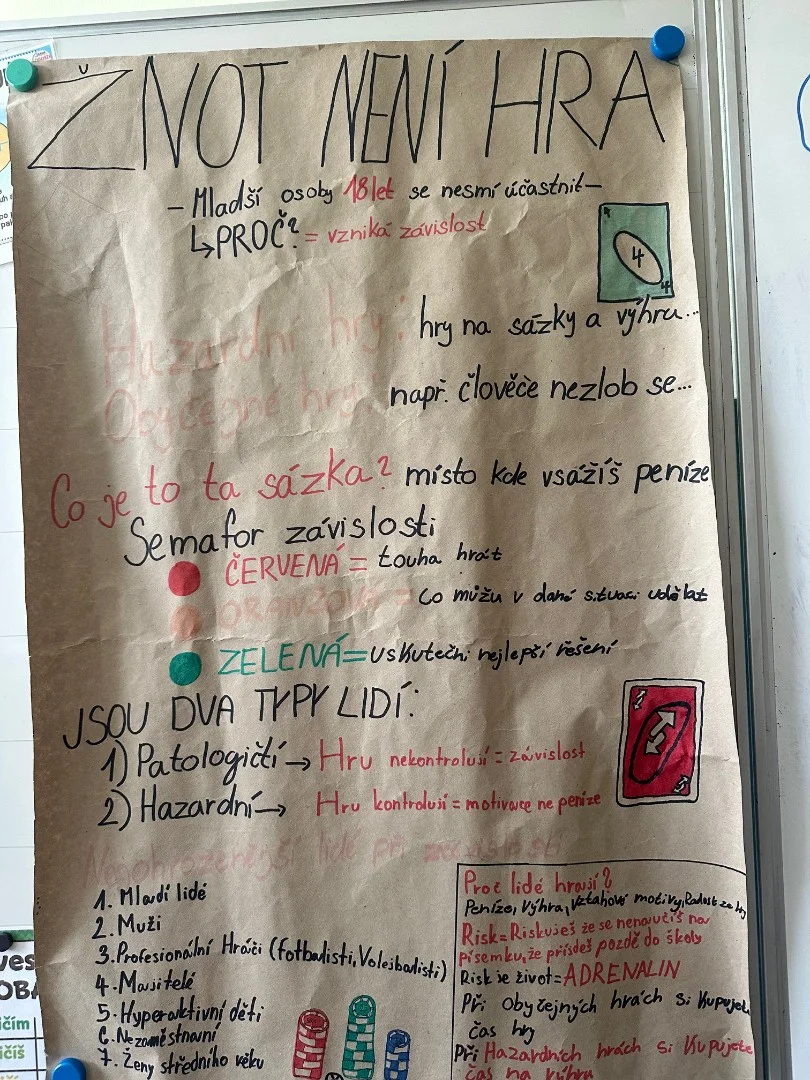 ŽNOT NENÍ HRA
- Mladší osoby 18 let se nesmí účastnit -
↳ PROČ? = vzniká závislost
4
4
Hazardní hry: hry na sázky a výhru...
Obyčejné hry: např. člověče nezlob se...
Co je to ta sázka? místo kde vsážíš peníze
Semafor závislosti
ČERVENÁ = touha hrát
ORANŽOVÁ = Co můžu v dané situaci udělat
ZELENÁ = Uskuteční nejlepší řešení
JSOU DVA TYPY LIDÍ:
1) Patologičtí → Hru nekontrolují = závislost
2) Hazardní → Hru kontrolují = motivace ne peníze
Nejohroženější lidé při závislosti
1. Mladí lidé
2. Muži
3. Profesionální Hráči (fotbalisti, Volejbalisti)
4. Majitelé
5. Hyperaktivní děti
6. Nezaměstnaní
7. Ženy středního věku
Proč lidé hrají?
Peníze, Výhra, Vztahové motivy, Radost ze hry
Risk = Riskuješ že se nenaučíš na
písemku, že přijdeš pozdě do školy
Risk je život = ADRENALIN
Při Obyčejných hrách si Kupujete
čas hry
Při Hazardních hrách si Kupujete
čas na výhru